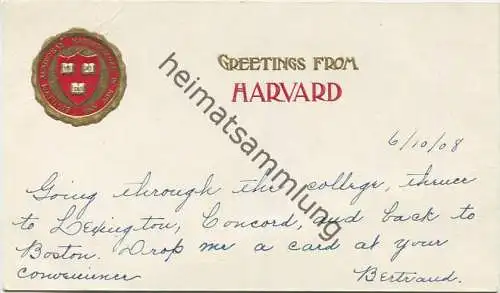 GREETINGS FROM
HARVARD
6/10/08
Going through the college, thence
to Lexington, Concord, and back to
Boston. Drop me a card at your
convenience Bertrand.
heimatsammlung